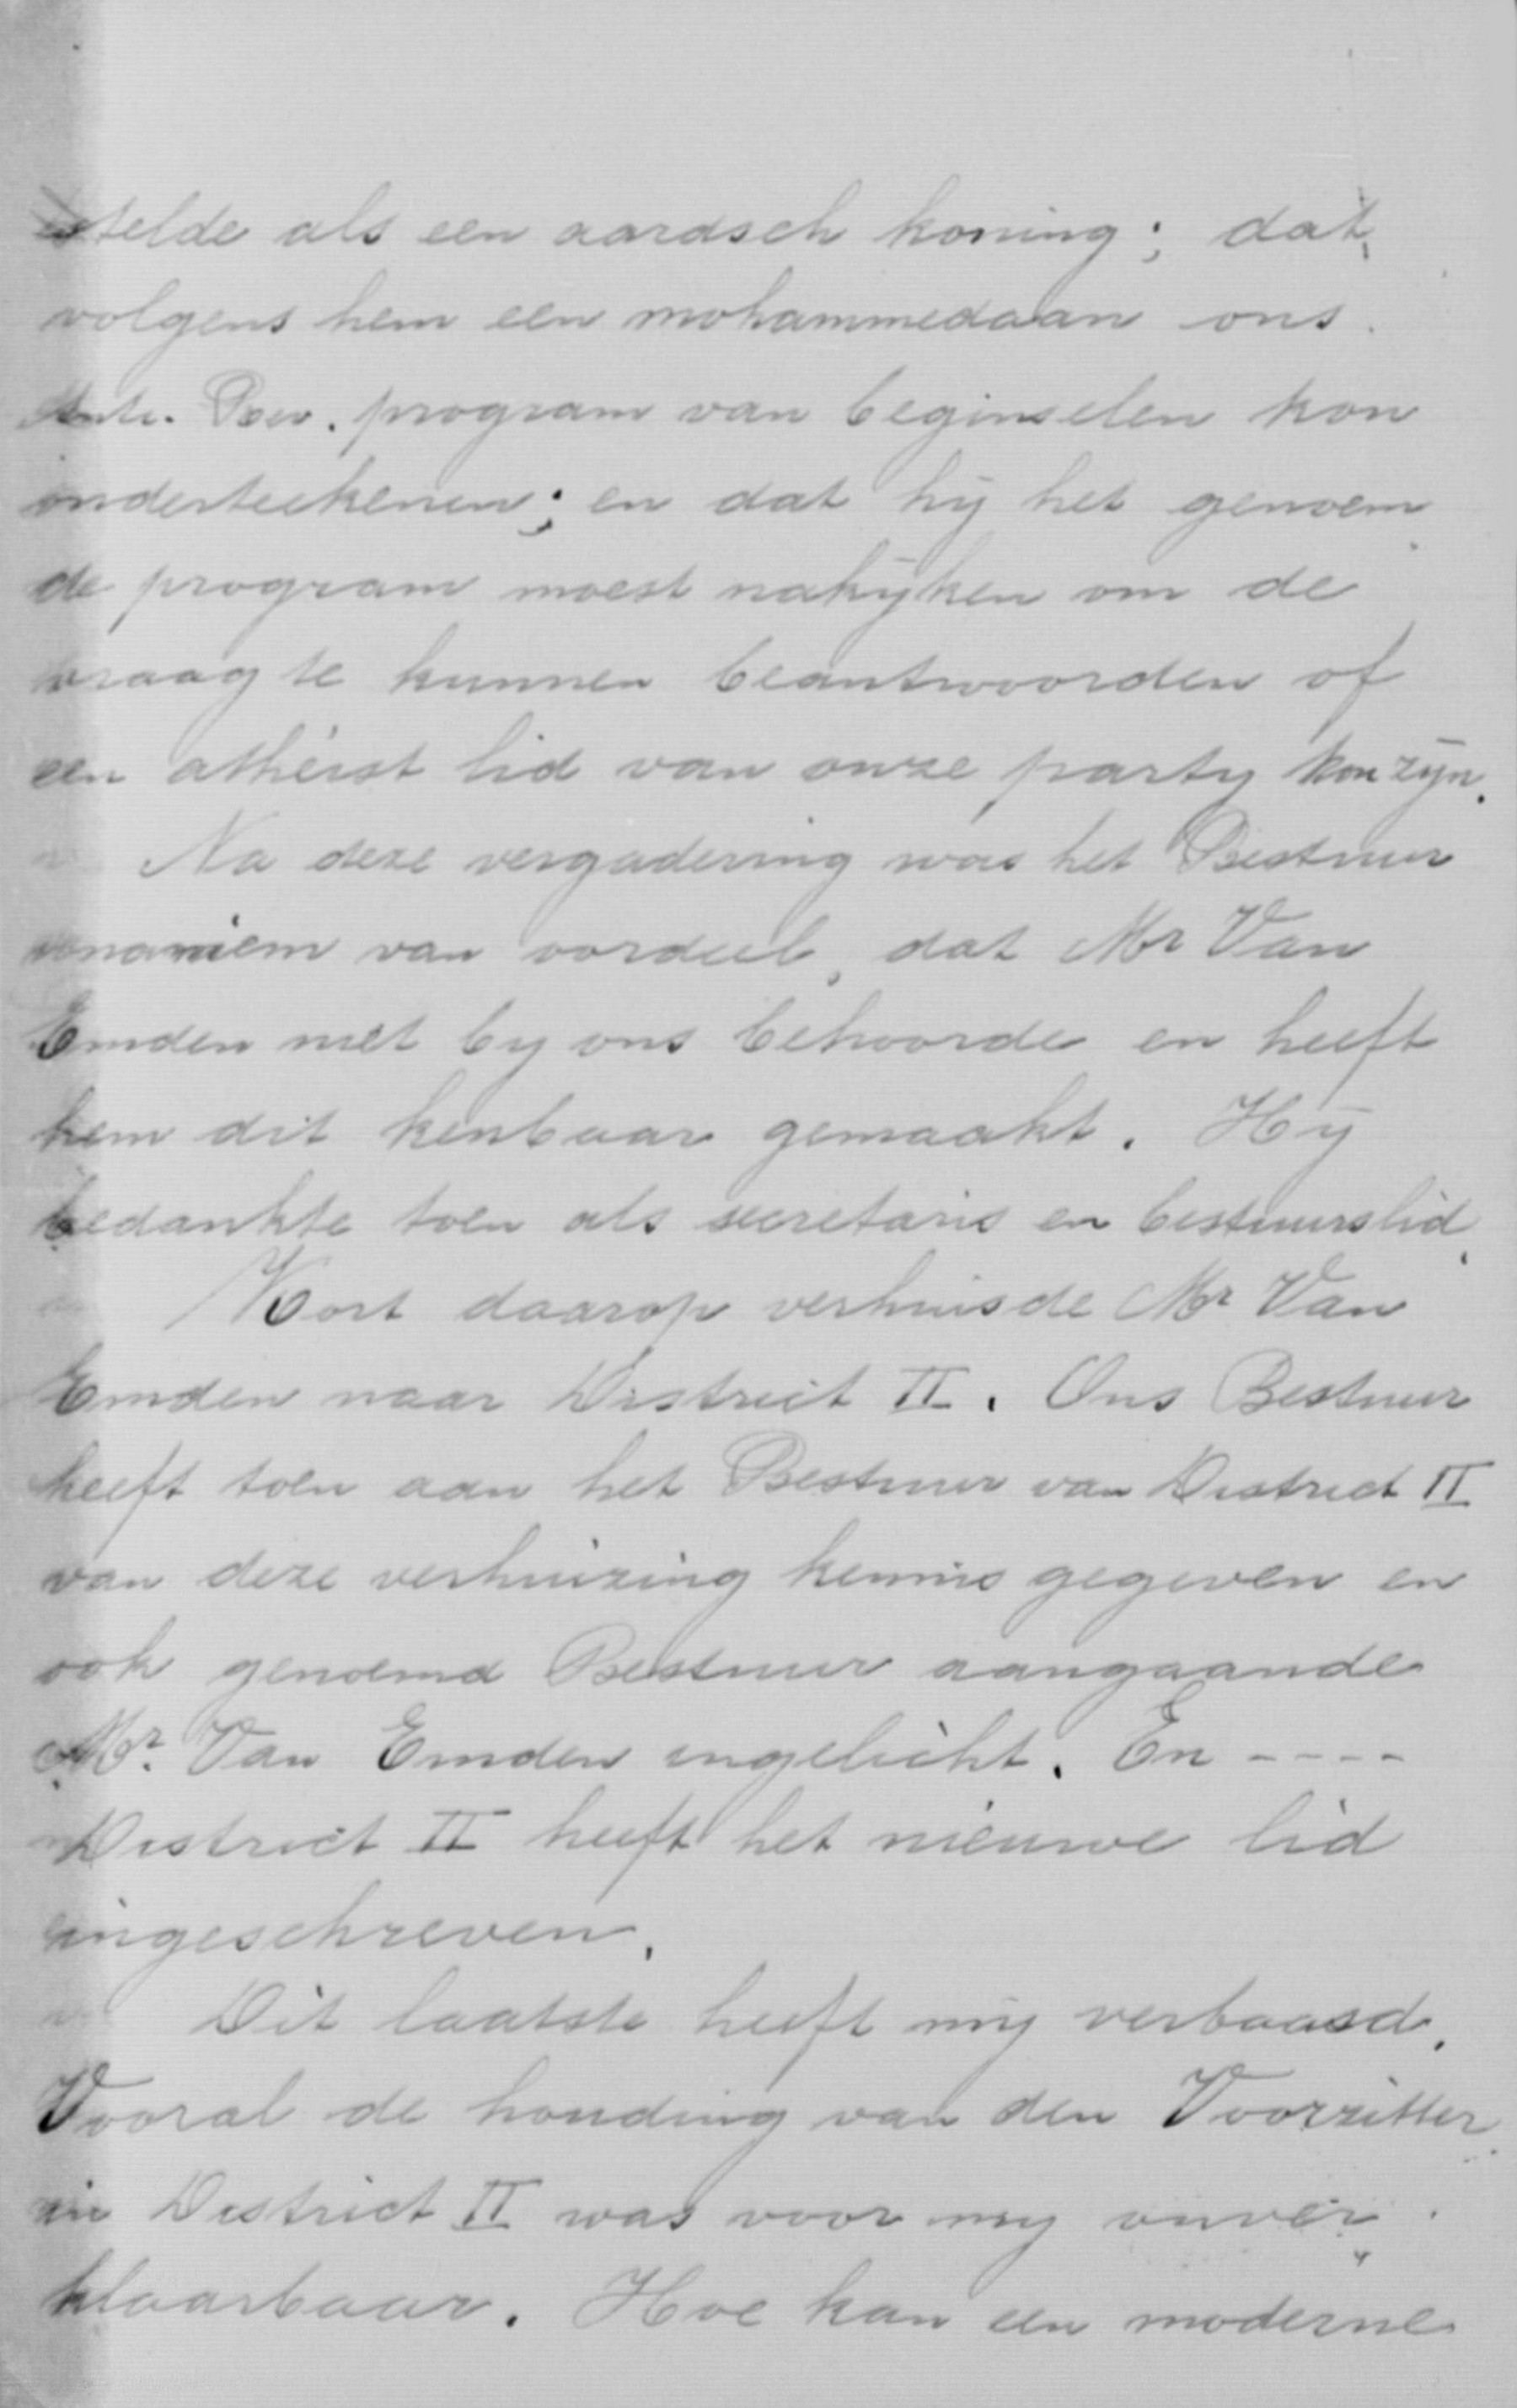 stelde als een aardsch koning; dat
volgens hem een mohammedaan ons
Anti. Rev. program van beginselen kon
onderteekenen; en dat hij het genoem
de program moest nakijken om de
vraag te kunnen beantwoorden of
een atheïst lid van onze party kon zijn.
Na deze vergadering was het Bestuur
unaniem van oordeel, dat Mr Van
Emden niet by ons behoorde en heeft
hem dit kenbaar gemaakt. Hij
bedankte toen als secretaris en bestuurslid.
Kort daarop verhuisde Mr Van
Emden naar District II. Ons Bestuur
heeft toen aan het Bestuur van District II
van deze verhuizing kennis gegeven en
ook genoemd Bestuur aangaande
Mr. Van Emden ingelicht. En ----
District II heeft het nieuwe lid
ingeschreven.
Dit laatste heeft mij verbaasd.
Vooral de houding van den Voorzitter
in District II was voor my onver
klaarbaar. Hoe kan een moderne